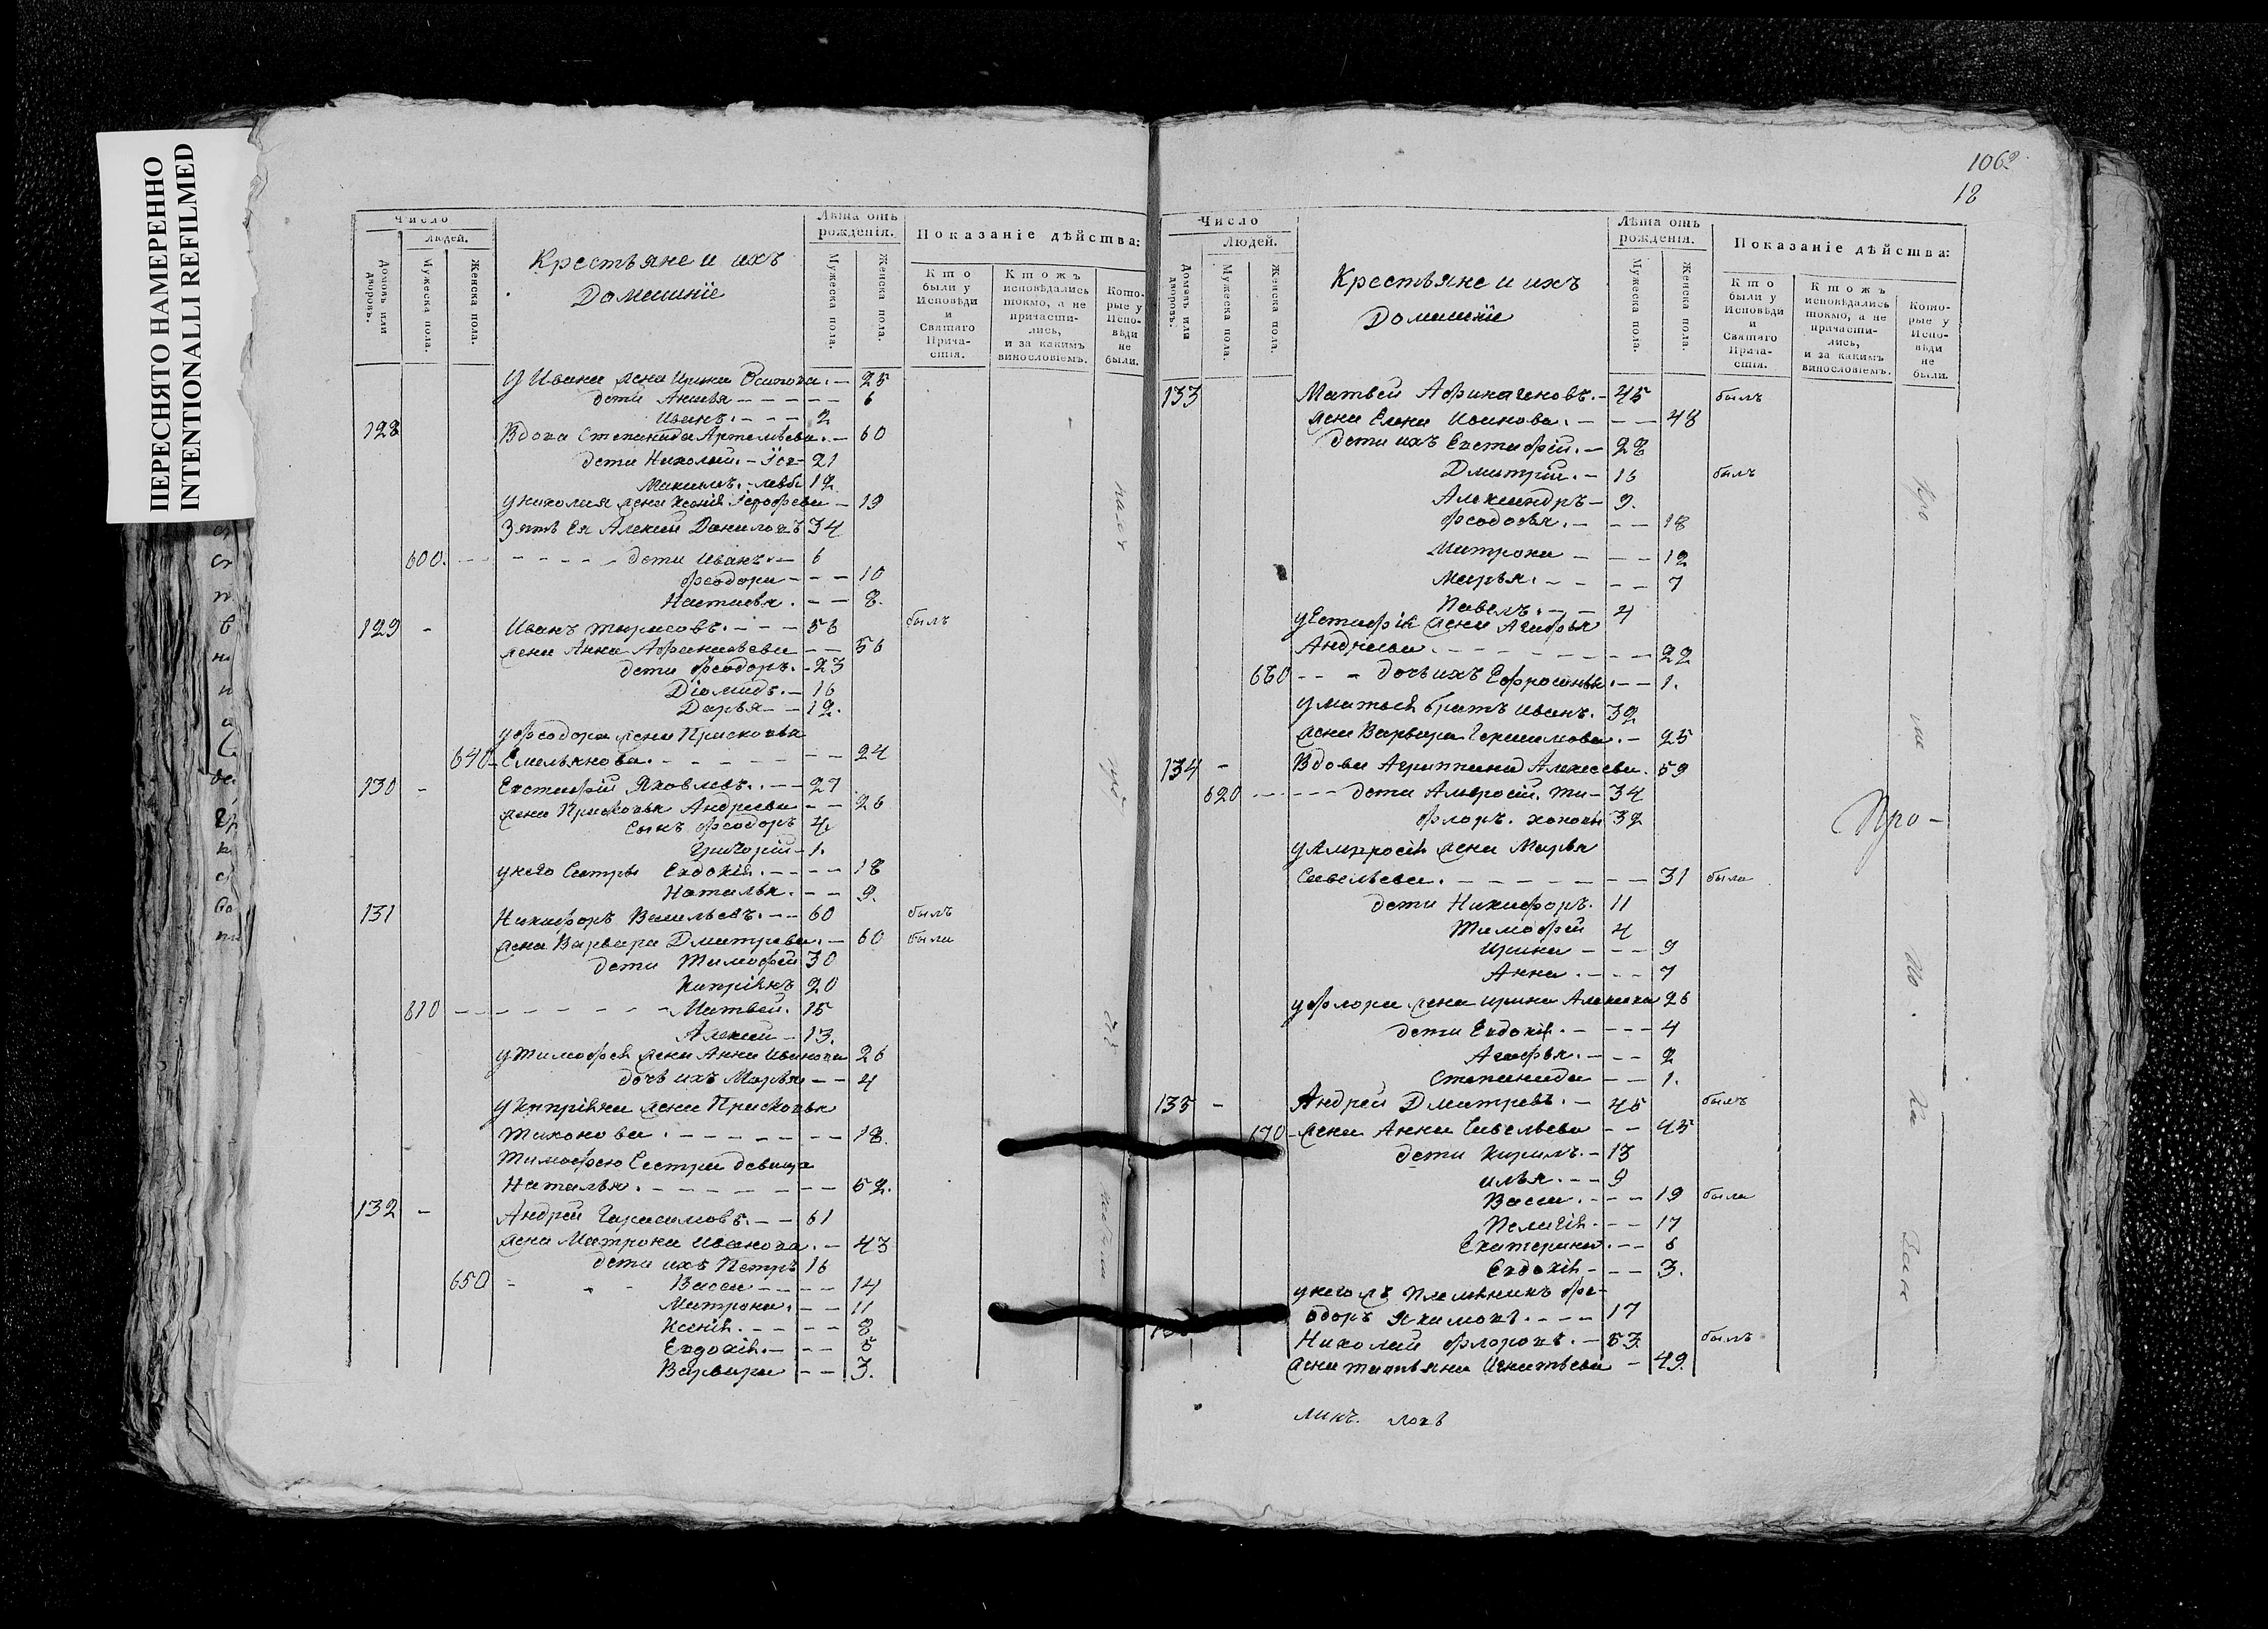 ПЕРЕСНЯТО НАМЕРЕННО
INTENTIONALLI REFILMED
Число
людей.
Домовъ или дворовъ.
Мужеска пола.
Женска пола.
Крестьяне и ихъ
Домашніе
Лѣта отъ
рожденія.
Мужеска пола.
Женска пола.
Показаніе дѣйства:
Кто были у Исповѣди и Святаго Причастія.
Ктожъ исповѣдались токмо, а не причастились, и за какимъ винословіемъ.
Которые у Исповѣди не были.
у Ивана жена Ирина Осипова. — 25
дети Анисья — 6
Иванъ. — 2
128 Вдова Степанида Артемьева. — 60
дети Николай. — 21
Максимъ. 12
у николая жена Ксенія — 19
Зять Ея Алексей Даниловъ 34
600. дети Иванъ. — 6
Феодора — 10
Настасья. — 8.
129 - Иванъ Тарасовъ. — 56 былъ
жена Анна Афанасьева — 56
дети Феодоръ. — 23
Діомидъ. — 16
Дарья — 12.
у Феодора жена Прасковья
640 Емельянова. — 24
130 - Евстафій Яковлевъ. — 27
жена Прасковья Андреева — 26
Сынъ Феодоръ 4.
Григорій — 1.
у него Сестры Евдокія. — 18
Наталья. — 9.
131 Никифоръ Васильевъ. — 60 былъ
жена Варвара Дмитрева. — 60 была
дети Тимофей 30
Кипріянъ 20
610 Матвей. 15
Алексей — 13.
у Тимофея жена Анна Иванова 26
дочь ихъ Марья — 4
у Кипріяна жена Прасковья
Тихонова. — 18.
Тимофею Сестра девица
Наталья. — 52.
132 - Андрей Гарасимовъ. — 61
жена Матрона Иванова. — 43
дети ихъ Петръ 16
650 Васса — 14
Матрона. — 11
Ксенія. — 8
Евдокія. — 5
Варвара — 3.
1062
18
Число
Людей.
Домовъ или дворовъ.
Мужеска пола.
Женска пола.
Крестьяне и ихъ
Домашніе
Лѣта отъ
рожденія.
Мужеска пола.
Женска пола.
Показаніе дѣйства:
Кто были у Исповѣди и Святаго Причастія.
Ктожъ исповѣдались токмо, а не причастились, и за какимъ винословіемъ.
Которые у Исповѣди не были.
133 Матвей Афиногеновъ. — 45 былъ
жена Елена Иванова. — 48
дети ихъ Евстафій. — 28
Дмитрій. — 16 былъ
Александръ — 9.
Феодосья. — 18
Матрона — 12
Марья. — 7
Павелъ. — 4
у Естафія жена Агафья
Андреева. — 22
660 дочь ихъ Ефросинья. — 1.
у матвея братъ Иванъ. 32
жена Варвара Герасимова. — 25
134 - Вдова Агриппина Алексеева. 59
620 дети Амвросій. Ти- 34
Флоръ. хоновы 32
у Амвросія жена Марья
Савельева. — 31 была
дети Никифоръ. 11
Тимофей 4
Ирина — 9
Анна. — 7
у Флора жена Ирина 26
дети Евдокія. — 4
Агафья. — 2
Степанида — 1.
135 - Андрей Дмитревъ. — 45 былъ
670 жена Анна Савельева — 45
дети Кирилъ. — 13
Илья. — 9
Васса. — 19 была
Пелагія. — 17
Екатерина. — 6
Евдокія — 3.
у негожъ племянникъ Фе-
одоръ Якимовъ. — 17
Николай Флоровъ. — 53 былъ
жена Татьяна Игнатьева — 49.
Про-